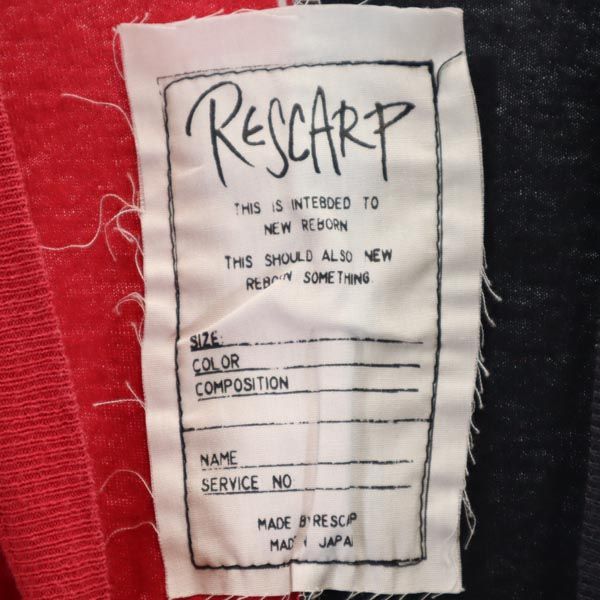 RESCARP
THIS IS INTEBDED TO
NEW REBORN
THIS SHOULD ALSO NEW
REBORN SOMETHING.
SIZE:
COLOR
COMPOSITION
NAME
SERVICE NO.
MADE BY RESCARP
MADE IN JAPAN